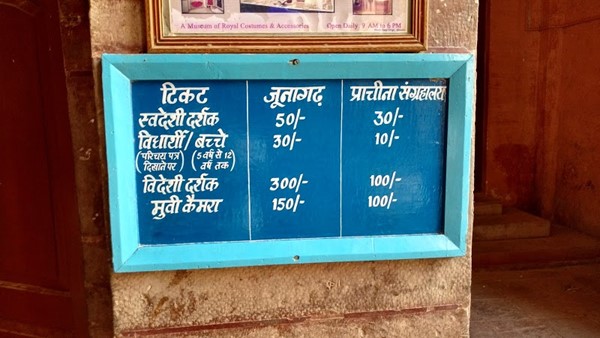 A Museum of Royal Costumes & Accessories Open Daily, 9 AM to 6 PM
टिकट जूनागढ़ प्राचीना संग्रहालय
स्वदेशी दर्शक 50/- 30/-
विधार्थी/बच्चे 30/- 10/-
(परिचय पत्र दिखाने पर) (5 वर्ष से 12 वर्ष तक)
विदेशी दर्शक 300/- 100/-
मुवी कैमरा 150/- 100/-